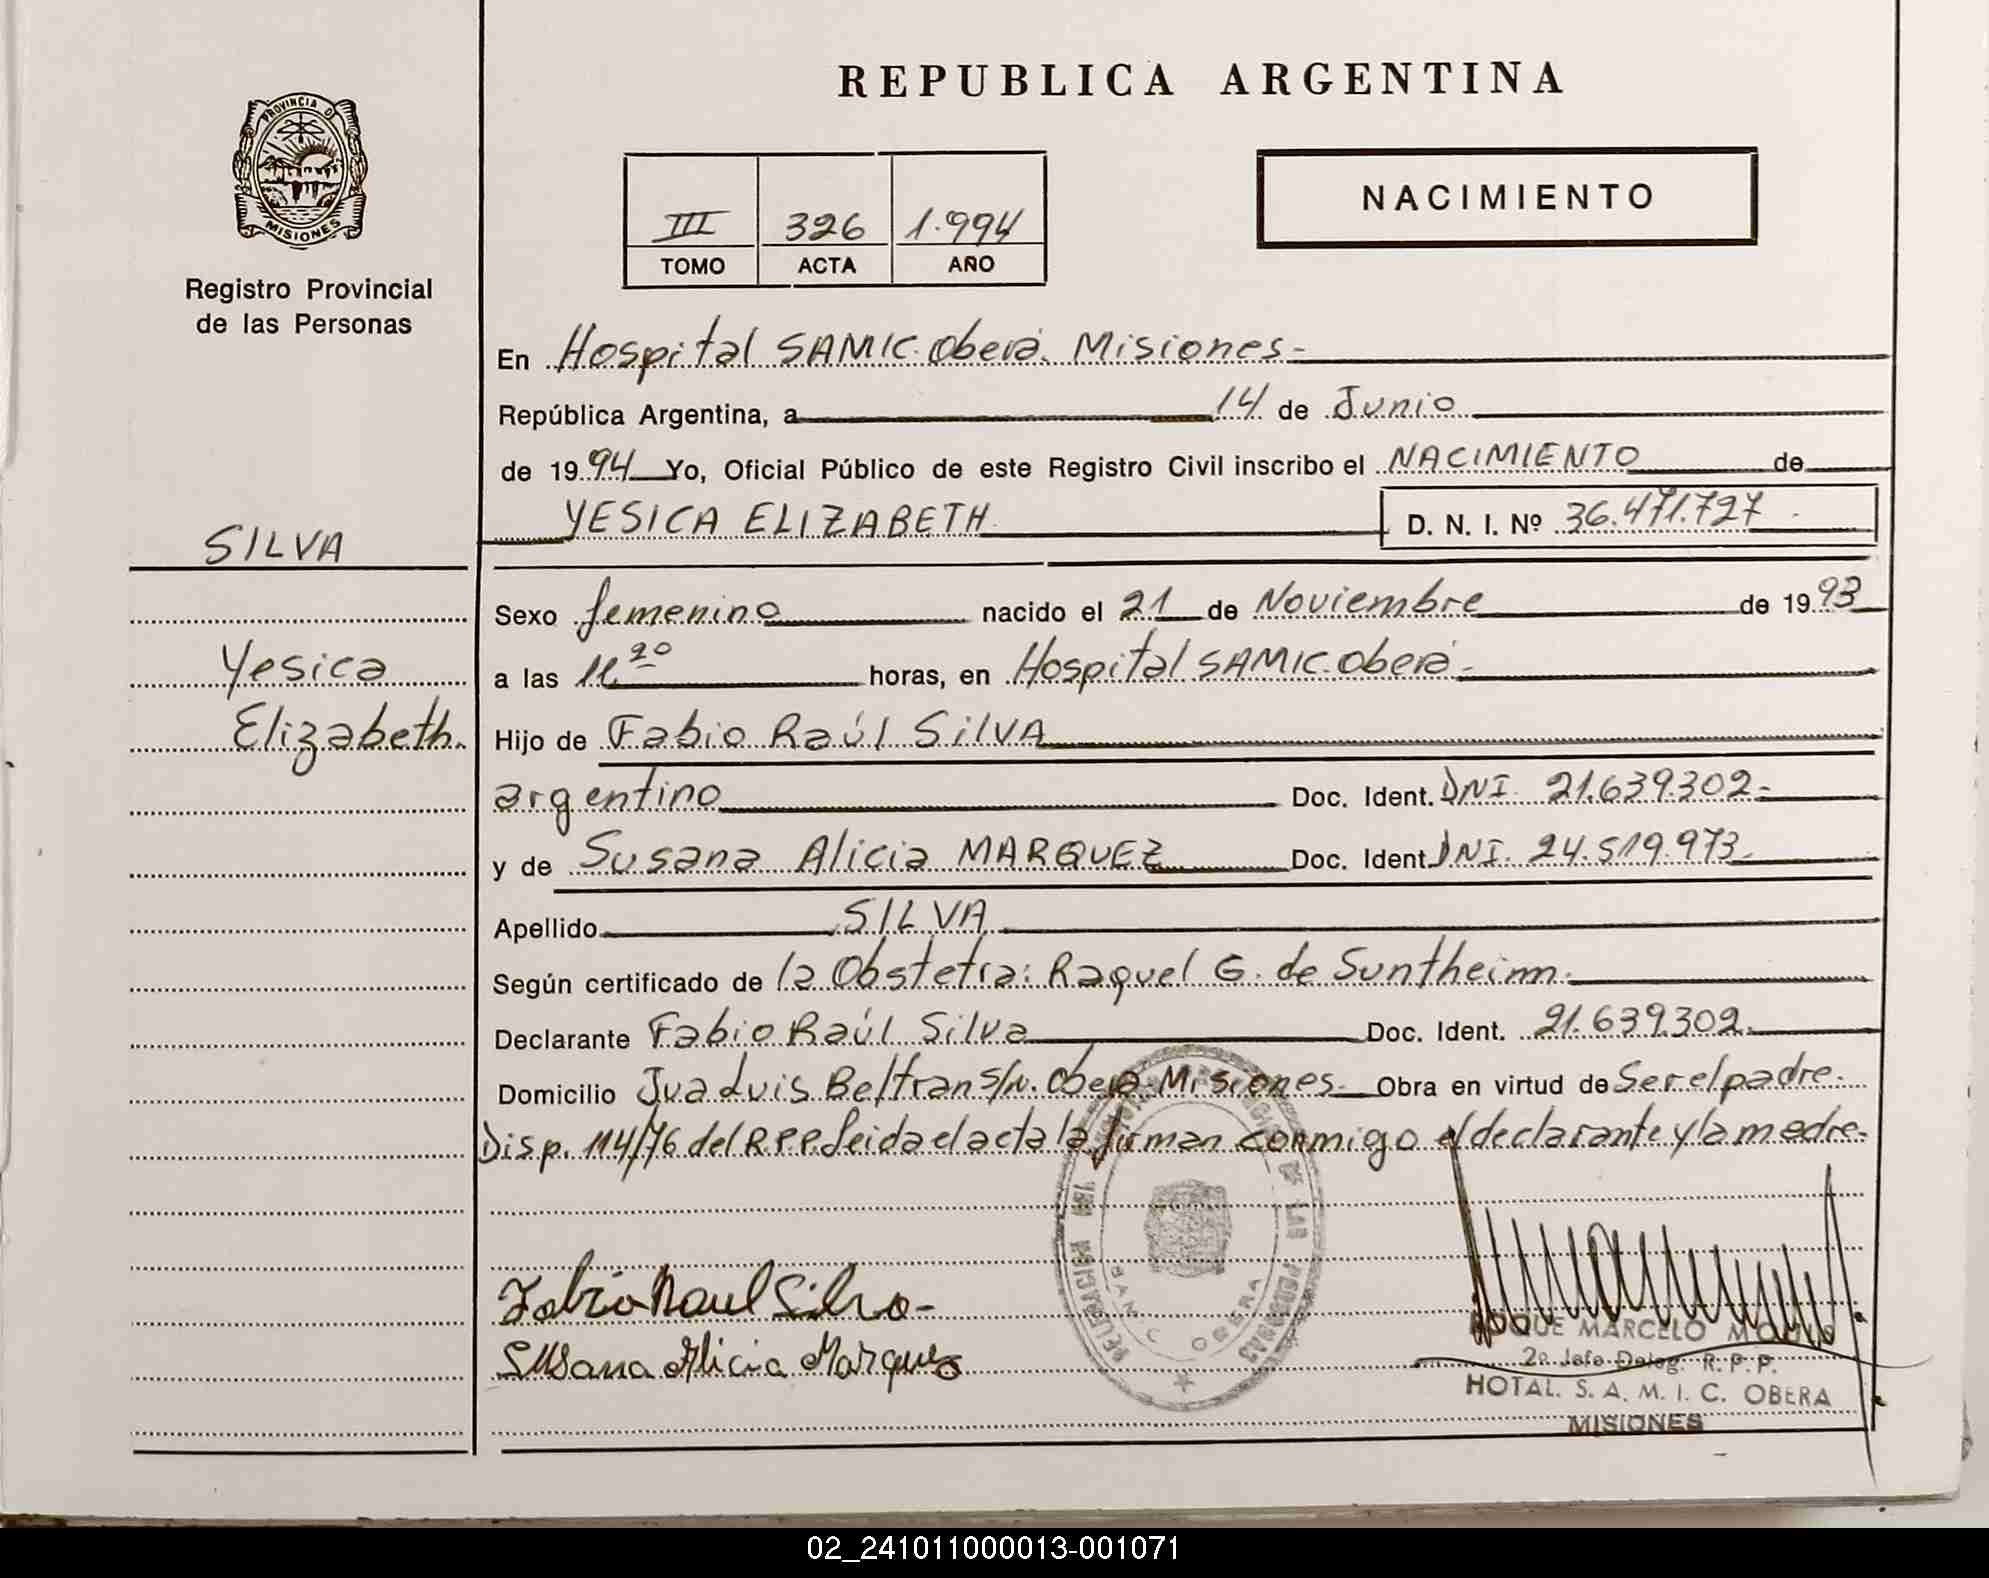 REPUBLICA ARGENTINA
PROVINCIA D
MISIONES
Registro Provincial
de las Personas
III 326 1.994
TOMO ACTA AÑO
NACIMIENTO
En Hospital SAMIC. Oberá. Misiones-
República Argentina, a 14 de Junio
de 19 94 Yo, Oficial Público de este Registro Civil inscribo el NACIMIENTO de
YESICA ELIZABETH D. N. I. Nº 36.471.727
SILVA
Yesica
Elizabeth.
Sexo femenino nacido el 21 de Noviembre de 19 93
a las 11.20 horas, en Hospital SAMIC. Oberá-
Hijo de Fabio Raúl SilVA
argentino Doc. Ident. DNI. 21.639.302-
y de Susana Alicia MARQUEZ Doc. Ident. DNI. 24.519.973-
Apellido SILVA
Según certificado de la Obstetra: Raquel G. de Suntheimn.
Declarante Fabio Raúl Silva Doc. Ident. 21.639.302-
Domicilio Jua Luis Beltran s/n. Oberá-Misiones- Obra en virtud de Ser el padre.
Disp. 114/76 del R.P.P. Leida el acta la firman conmigo el declarante y la madre-
Fabio Raul Silva-
Susana Alicia Marquez
OBERA
ROQUE MARCELO
2º Jefe Deleg. R. P. P.
HOTAL. S. A. M. I. C. OBERA
MISIONES
02_241011000013-001071